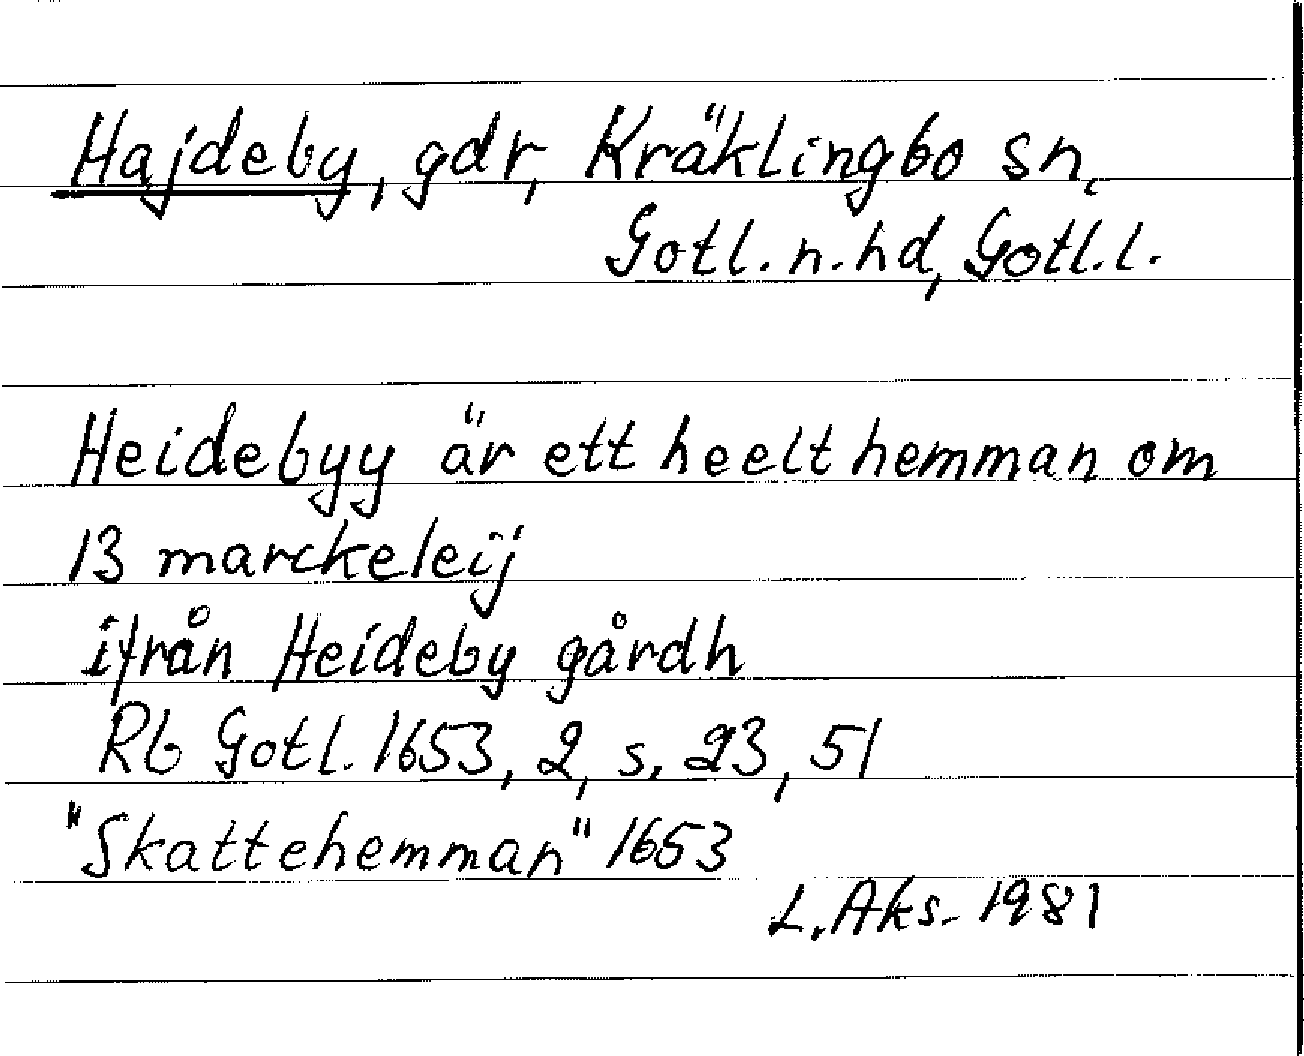 Hajdeby, gdr, Kräklingbo sn,
Gotl. n. hd, Gotl. l.
Heidebyy är ett heelt hemman om
13 marckeleij
ifrån Heideby gårdh
Rb Gotl. 1653, 2, s. 23, 51
"Skattehemman" 1653
L. Aks. 1981